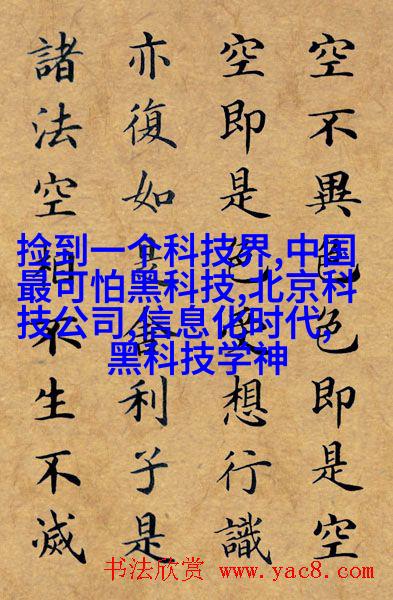 空不異色色即是空
空即是色受想行識
亦復如是舍利子是
諸法空相不生不滅
捡到一个科技界,中国
最可怕黑科技,北京科
技公司,信息化时代,
黑科技学神
书法欣赏 www.yac8.com